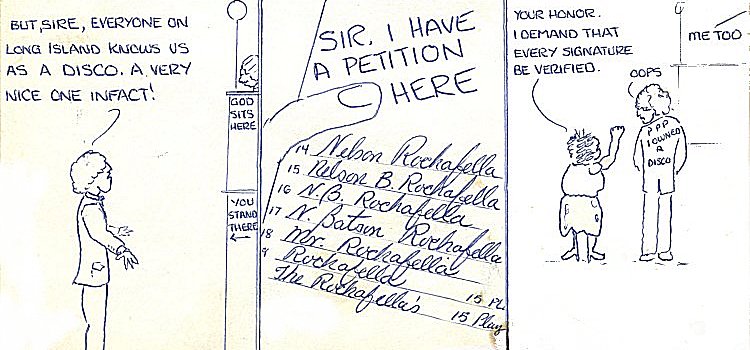 BUT, SIRE, EVERYONE ON
LONG ISLAND KNOWS US
AS A DISCO. A VERY
NICE ONE INFACT!
GOD
SITS
HERE
YOU
STAND
THERE
SIR. I HAVE
A PETITION
HERE
14 Nelson Rochafella
15 Nelson B. Rochafella
16 N.B. Rochafella
17 N. Batson Rochafella
18 Mr. Rochafella
9 Rochafella
The Rochafella's
15 PL
15 Play
YOUR HONOR.
I DEMAND THAT
EVERY SIGNATURE
BE VERIFIED.
OOPS
ME TOO
PPP
I OWNED
A
DISCO